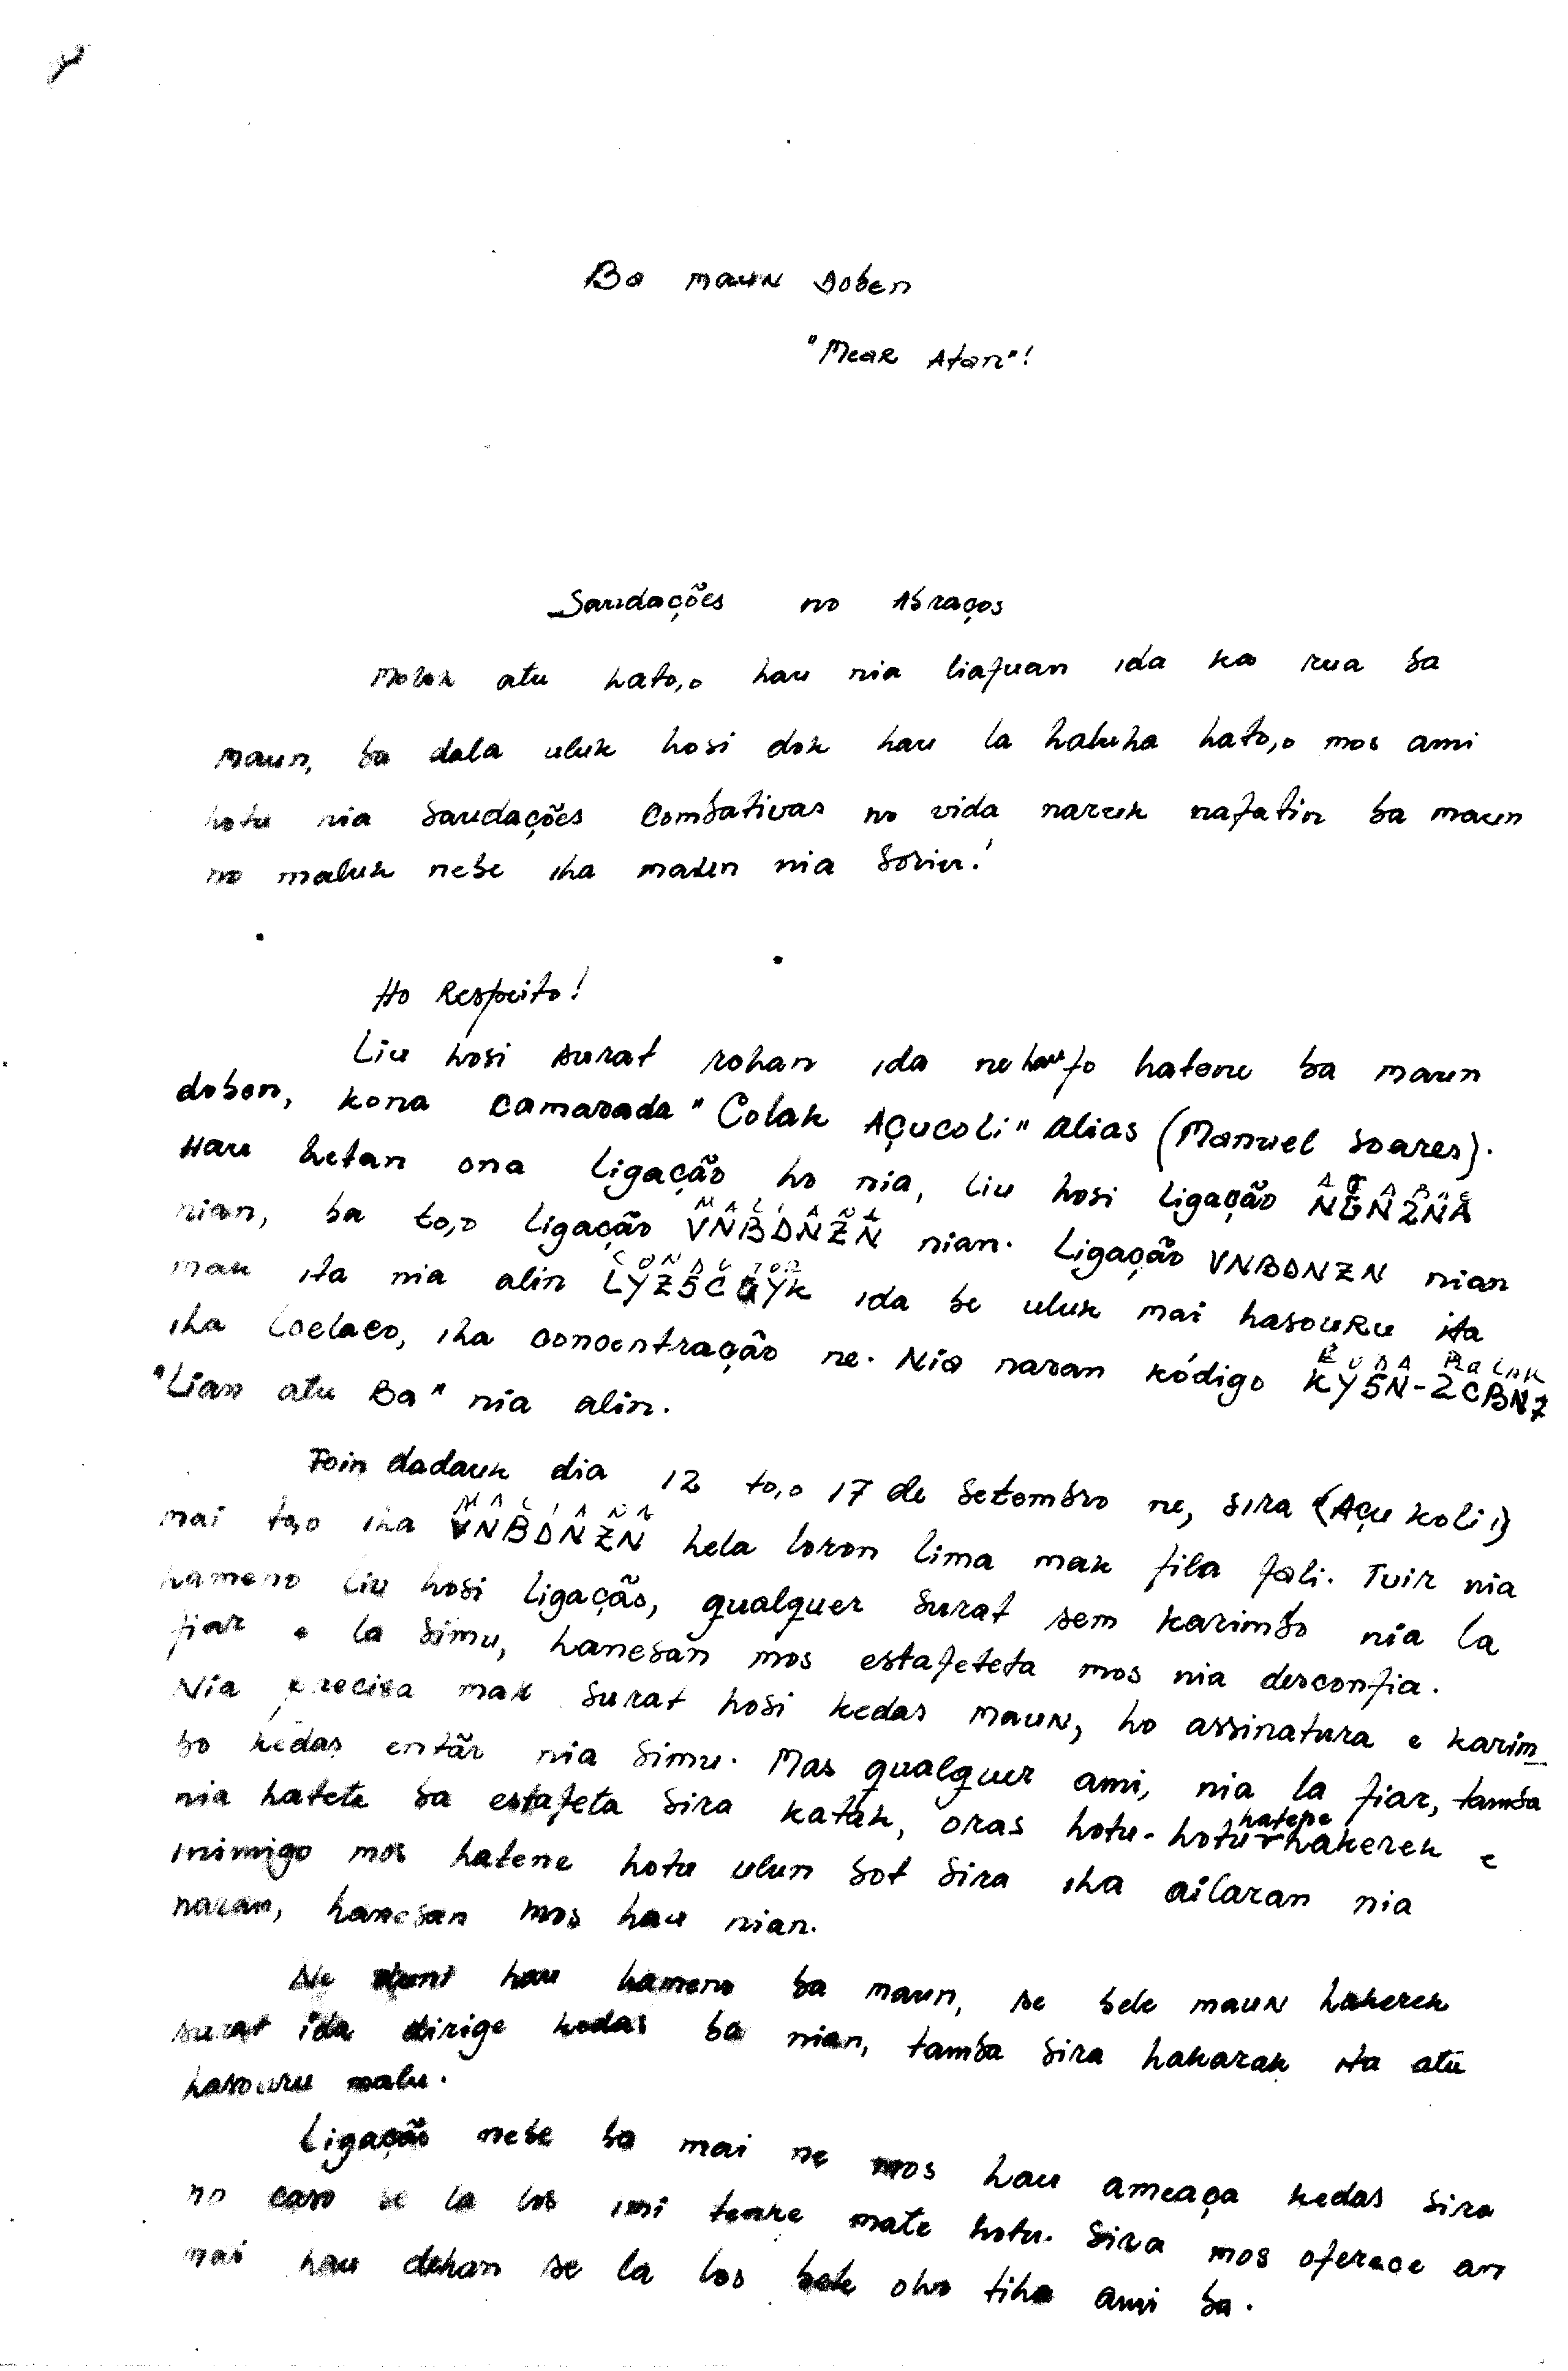 Ba maun doben
"Mear Atan"!
Saudações no Abraços
Molok atu hato,o hau nia liafuan ida ka rua ba
maun, ba dala uluk hosi dok hau la haluha hato,o mos ami
hotu nia saudações combativas no vida naruk nafatin ba maun
no maluk nebe iha maun nia sorin!
Ho Respeito!
Liu hosi surat rohan ida ne hau fo hatene ba maun
doben, kona camarada "Colak Açucoli" alias (Manuel Soares).
Hau hetan ona ligação ho nia, liu hosi ligação NGNZNA
nian, ba to,o ligação VNBDNZN nian. Ligação VNBDNZN nian
MALIANA
mak ita nia alin LYZ5CGYK ida be uluk mai hasouRu ita
CONDUTOR
iha Loelaco, iha concentração ne. Nia naran kódigo KY5N-ZCBNZ
"Lian atu Ba" nia alin.
Foin dadauk dia 12 to,o 17 de Setembro ne, sira (Açu koli)
MALIANA
mai to,o iha VNBDNZN hela loron lima mak fila fali. Tuir nia
hameno liu hosi ligação, qualquer surat sem karimbo nia la
fiar e la simu, hanesan mos estafeteta mos nia desconfia.
Nia precisa mak surat hosi kedas maun, ho assinatura e karim_
bo kedas então nia simu. Mas qualquer ami, nia la fiar, tamba
nia hatete ba estafeta sira katak, oras hotu-hotu hatene hakerek e
inimigo mos hatene hotu ulun bot sira iha ailaran nia
naran, hanesan mos hau nian.
Ne duni hau hameno ba maun, se bele maun hakerek
surat ida dirige kedas ba nian, tamba sira hakarak ita atu
hasouru malu.
Ligação nebe ba mai ne mos hau ameaça kedas sira
no caso se la los imi tenke mate hotu. Sira mos oferece an
mai hau dehan se la los bele oho tiha ami ba.